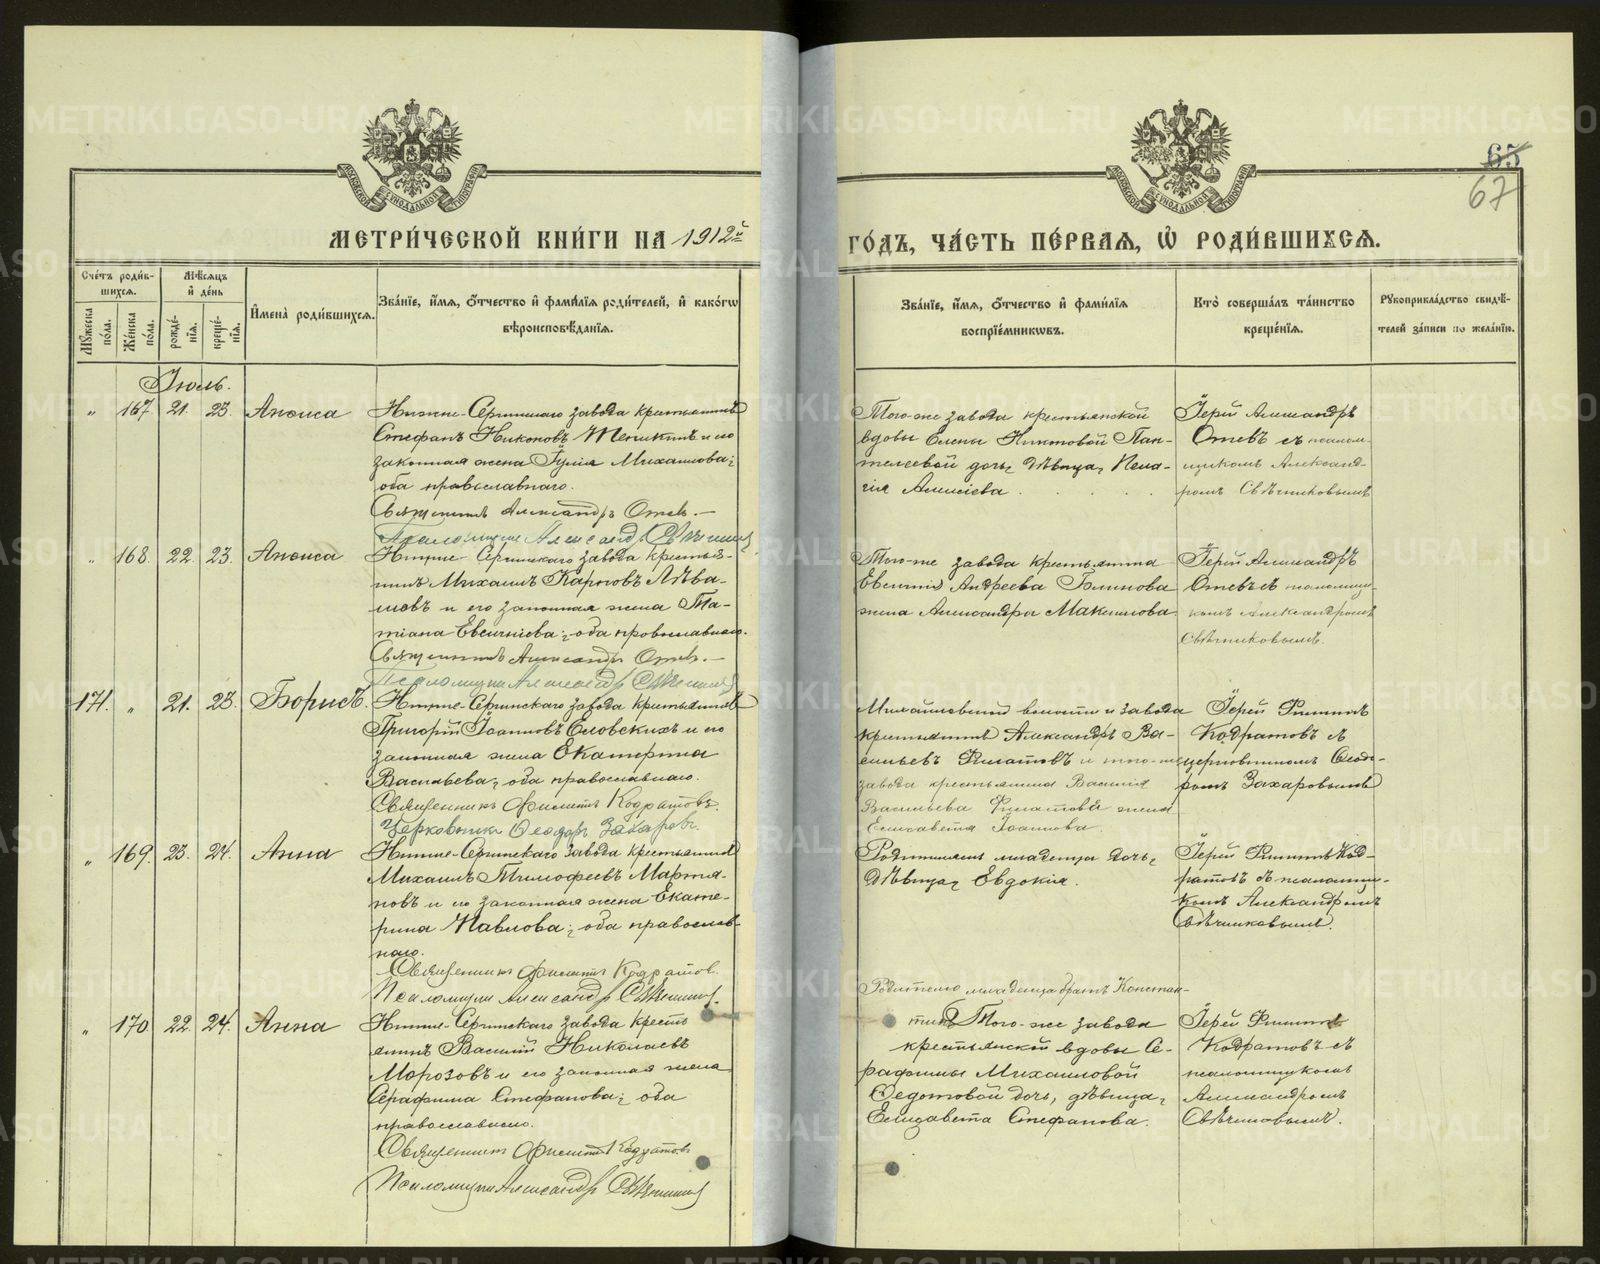 METRIKI.GASO-URAL.RU
65
67
МОСКОВСКОЙ СѴНОДАЛЬНОЙ ТИПОГРАФІИ
МОСКОВСКОЙ СѴНОДАЛЬНОЙ ТИПОГРАФІИ
МЕТРИ́ЧЕСКОЙ КНИ́ГИ НА 1912й
ГО́ДЪ, ЧА́СТЬ ПЕ́РВАЯ, Ѡ҆ РОДИ́ВШИХСЯ.
Сче́тъ роди́в-
шихся.
Мѣ́сяцъ
и҆ де́нь
Мꙋ́жеска по́ла.
Же́нска по́ла.
рожде́-
нїя.
креще́-
нїя.
И҆мена̀ роди́вшихся.
Зва́нїе, и҆́мя, ѻ҆́тчество и҆ фами́лїя роди́телей, и҆ како́гѡ
вѣроисповѣ́данїя.
Зва́нїе, и҆́мя, ѻ҆́тчество и҆ фами́лїя
воспрїе́мникѡвъ.
Кто̀ соверша́лъ та́инство
креще́нїя.
Рꙋкоприкла́дство свидѣ́-
телей за́писи по жела́нїю.
Іюль.
" 167. 21. 23. Анѳиса
Нижне-Сергинскаго завода крестьянинъ
Стефанъ Никоновъ и его
законная жена Іулія Михаилова;
оба православнаго.
Священникъ Александръ Отевъ.
Псаломщикъ Александръ Свѣчников
Того-же завода крестьянской
вдовы Елены Никитовой Пан-
телеевой дочь, дѣвица, Пела-
гія Алексіева
Іерей Александръ
Отевъ съ псалом-
щикомъ Александ-
ромъ Свѣчниковымъ
" 168. 22. 23. Анѳиса
Нижне-Сергинскаго завода крестья-
нинъ Михаилъ Карповъ Лѣва-
шовъ и его законная жена Та-
тіана Евсигніева; оба православнаго.
Священникъ Александръ Отевъ.
Псаломщикъ Александръ Свѣчников
Того-же завода крестьянина
Евсигнія Андреева Блинова
жена Александра Максимова
Іерей Александръ
Отевъ съ псаломщи-
комъ Александромъ
Свѣчниковымъ.
171. " 21. 23. Борисъ
Нижне-Сергинскаго завода крестьянинъ
Григорій Іоанновъ Еловскихъ и его
законная жена Екатерина
Васильева; оба православнаго.
Священникъ Филиппъ Кодратовъ.
Церковникъ Ѳеодоръ Захаровъ.
Михайловской волости и завода
крестьянинъ Александръ Ва-
сильевъ Филатовъ и того-же
завода крестьянина Василія
Васильева Филатова жена
Елисавета Іоаннова.
Іерей Филиппъ
Кодратовъ съ
церковникомъ Ѳеодо-
ромъ Захаровымъ
" 169. 23. 24. Анна
Нижне-Сергинскаго завода крестьянинъ
Михаилъ Тимофеевъ Мартья-
новъ и его законная жена Екате-
рина Павлова; оба православ-
наго.
Священникъ Филиппъ Кодратовъ.
Псаломщикъ Александръ Свѣчников.
Родителямъ младенца дочь,
дѣвица, Евдокія.
Іерей Филиппъ Код-
ратовъ съ псаломщи-
комъ Александромъ
Свѣчниковымъ.
" 170. 22. 24. Анна
Нижне-Сергинскаго завода кресть
янинъ Василій Николаевъ
Морозовъ и его законная жена
Серафима Стефанова; оба
православнаго.
Священникъ Филиппъ Кодратовъ
Псаломщикъ Александръ Свѣчников
Родителю младенца братъ Констан-
тинъ Того-же завода
крестьянской вдовы Се-
рафимы Михаиловой
Ѳедотовой дочь, дѣвица,
Елизавета Стефанова.
Іерей Филиппъ
Кодратовъ съ
псаломщикомъ
Александромъ
Свѣчниковымъ.